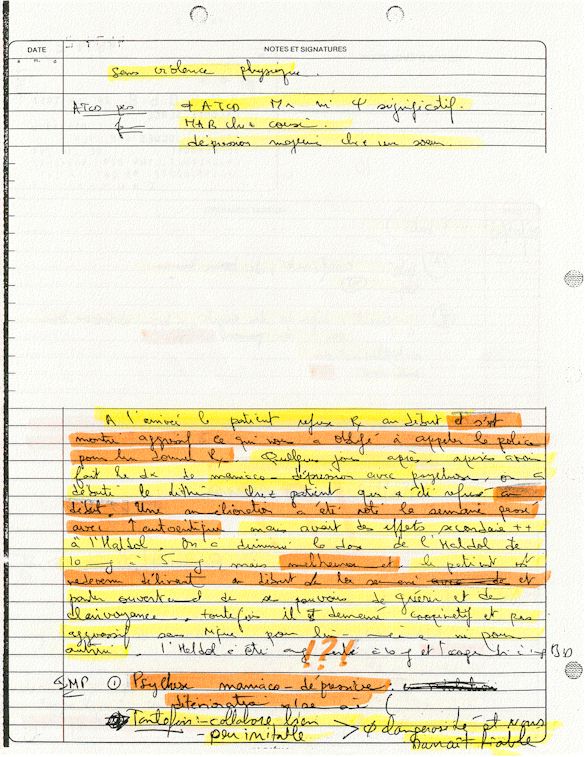 DATE NOTES ET SIGNATURES
sans violence physique.
ATCD pes φ ATCD Mx ni ψ significatif.
MAB chez cousin.
dépression majeure chez un soeur.
A l'arrivée le patient refuse Rx au début et s'est
montré agressif ce qui nous a obligé à appeler la police
pour lui donner Rx. Quelques jours après, après avoir
fait le dx de maniaco-dépression avec psychose, on a
débuté le lithium chez patient qui a été refusé au
début. Une amélioration a été noté la semaine passé
avec ↑ autocritique mais avait des effets secondaire ++
à l'Haldol. On a diminué le dose de l'Haldol de
10 mg à 5 mg, mais malheureusement, le patient est
redevenu délirant au début de la semaine et
parle ouvertement de ses pouvoirs de guérir et de
clairvoyance. toutefois il est demeuré coopératif et pas
agressif sans pour lui-même ni pour
autrui. l'Haldol a été à 10 mg et mg BID
!?!
IMP ① Psychose maniaco-dépressive
détérioration
Toutefois: -collabore bien > φ dangerosité et nous
-peu irritable parait fiable